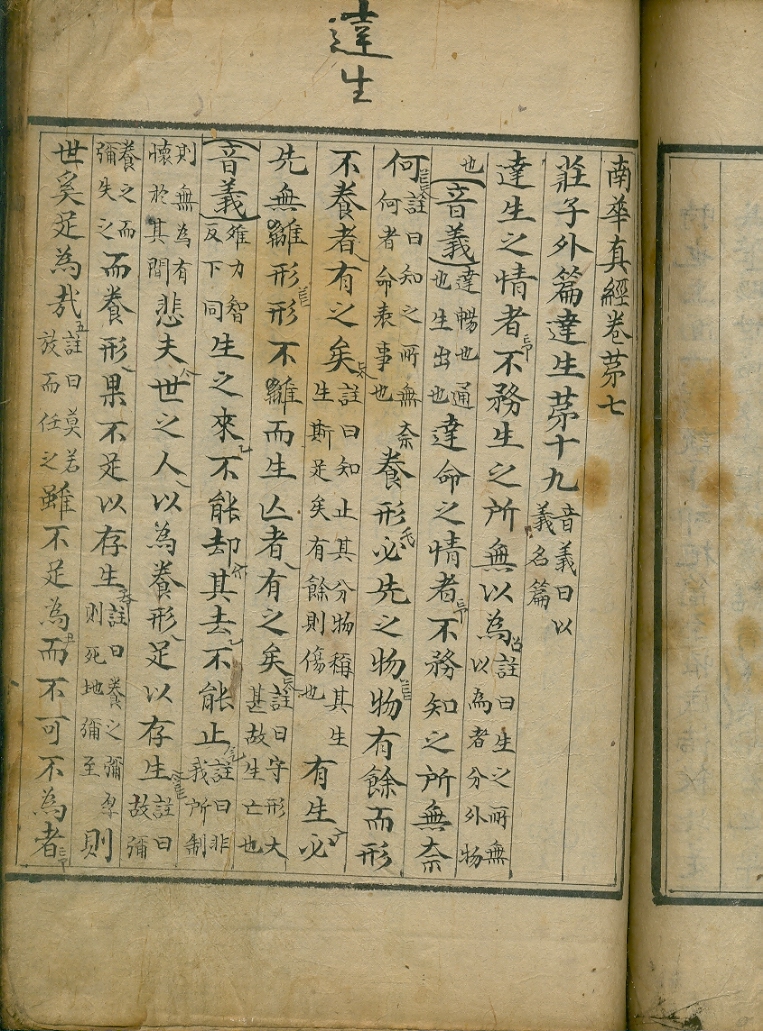 達生
南華真經卷苐七
莊子外篇達生苐十九音義曰以義名篇
達生之情者不務生之所無以為註曰生之所無以為者分外物
也音義達暢也通也生出也達命之情者不務知之所無奈
何註曰知之所無奈何者命表事也養形必先之物物有餘而形
不養者有之矣註曰知止其分物稱其生生斯足矣有餘則傷也有生必
先無離形形不離而生亾者有之矣註曰守形大甚故生亡也
音義離力智反下同生之來不能却其去不能止註曰非我所制
則無為有懷於其間悲夫世之人以為養形足以存生註曰故彌
養之而彌失之而養形果不足以存生註曰養之彌厚則死地彌至則
世奚足為哉註曰莫若放而任之雖不足為而不可不為者